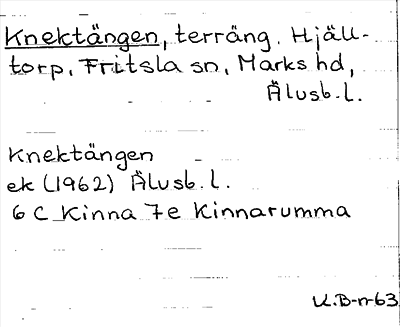 Knektängen, terräng. Hjäll-
torp, Fritsla sn, Marks hd,
Älvsb. l.
Knektängen
ek (1962) Älvsb. l.
6 C Kinna 7e Kinnarumma
U.B-n-63